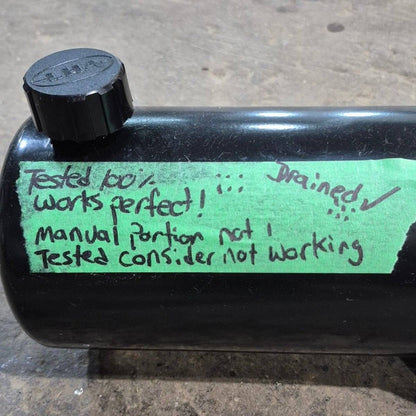 LHA
Tested 100%
works perfect!
Drained ✓
Manual Portion not !
Tested consider not working